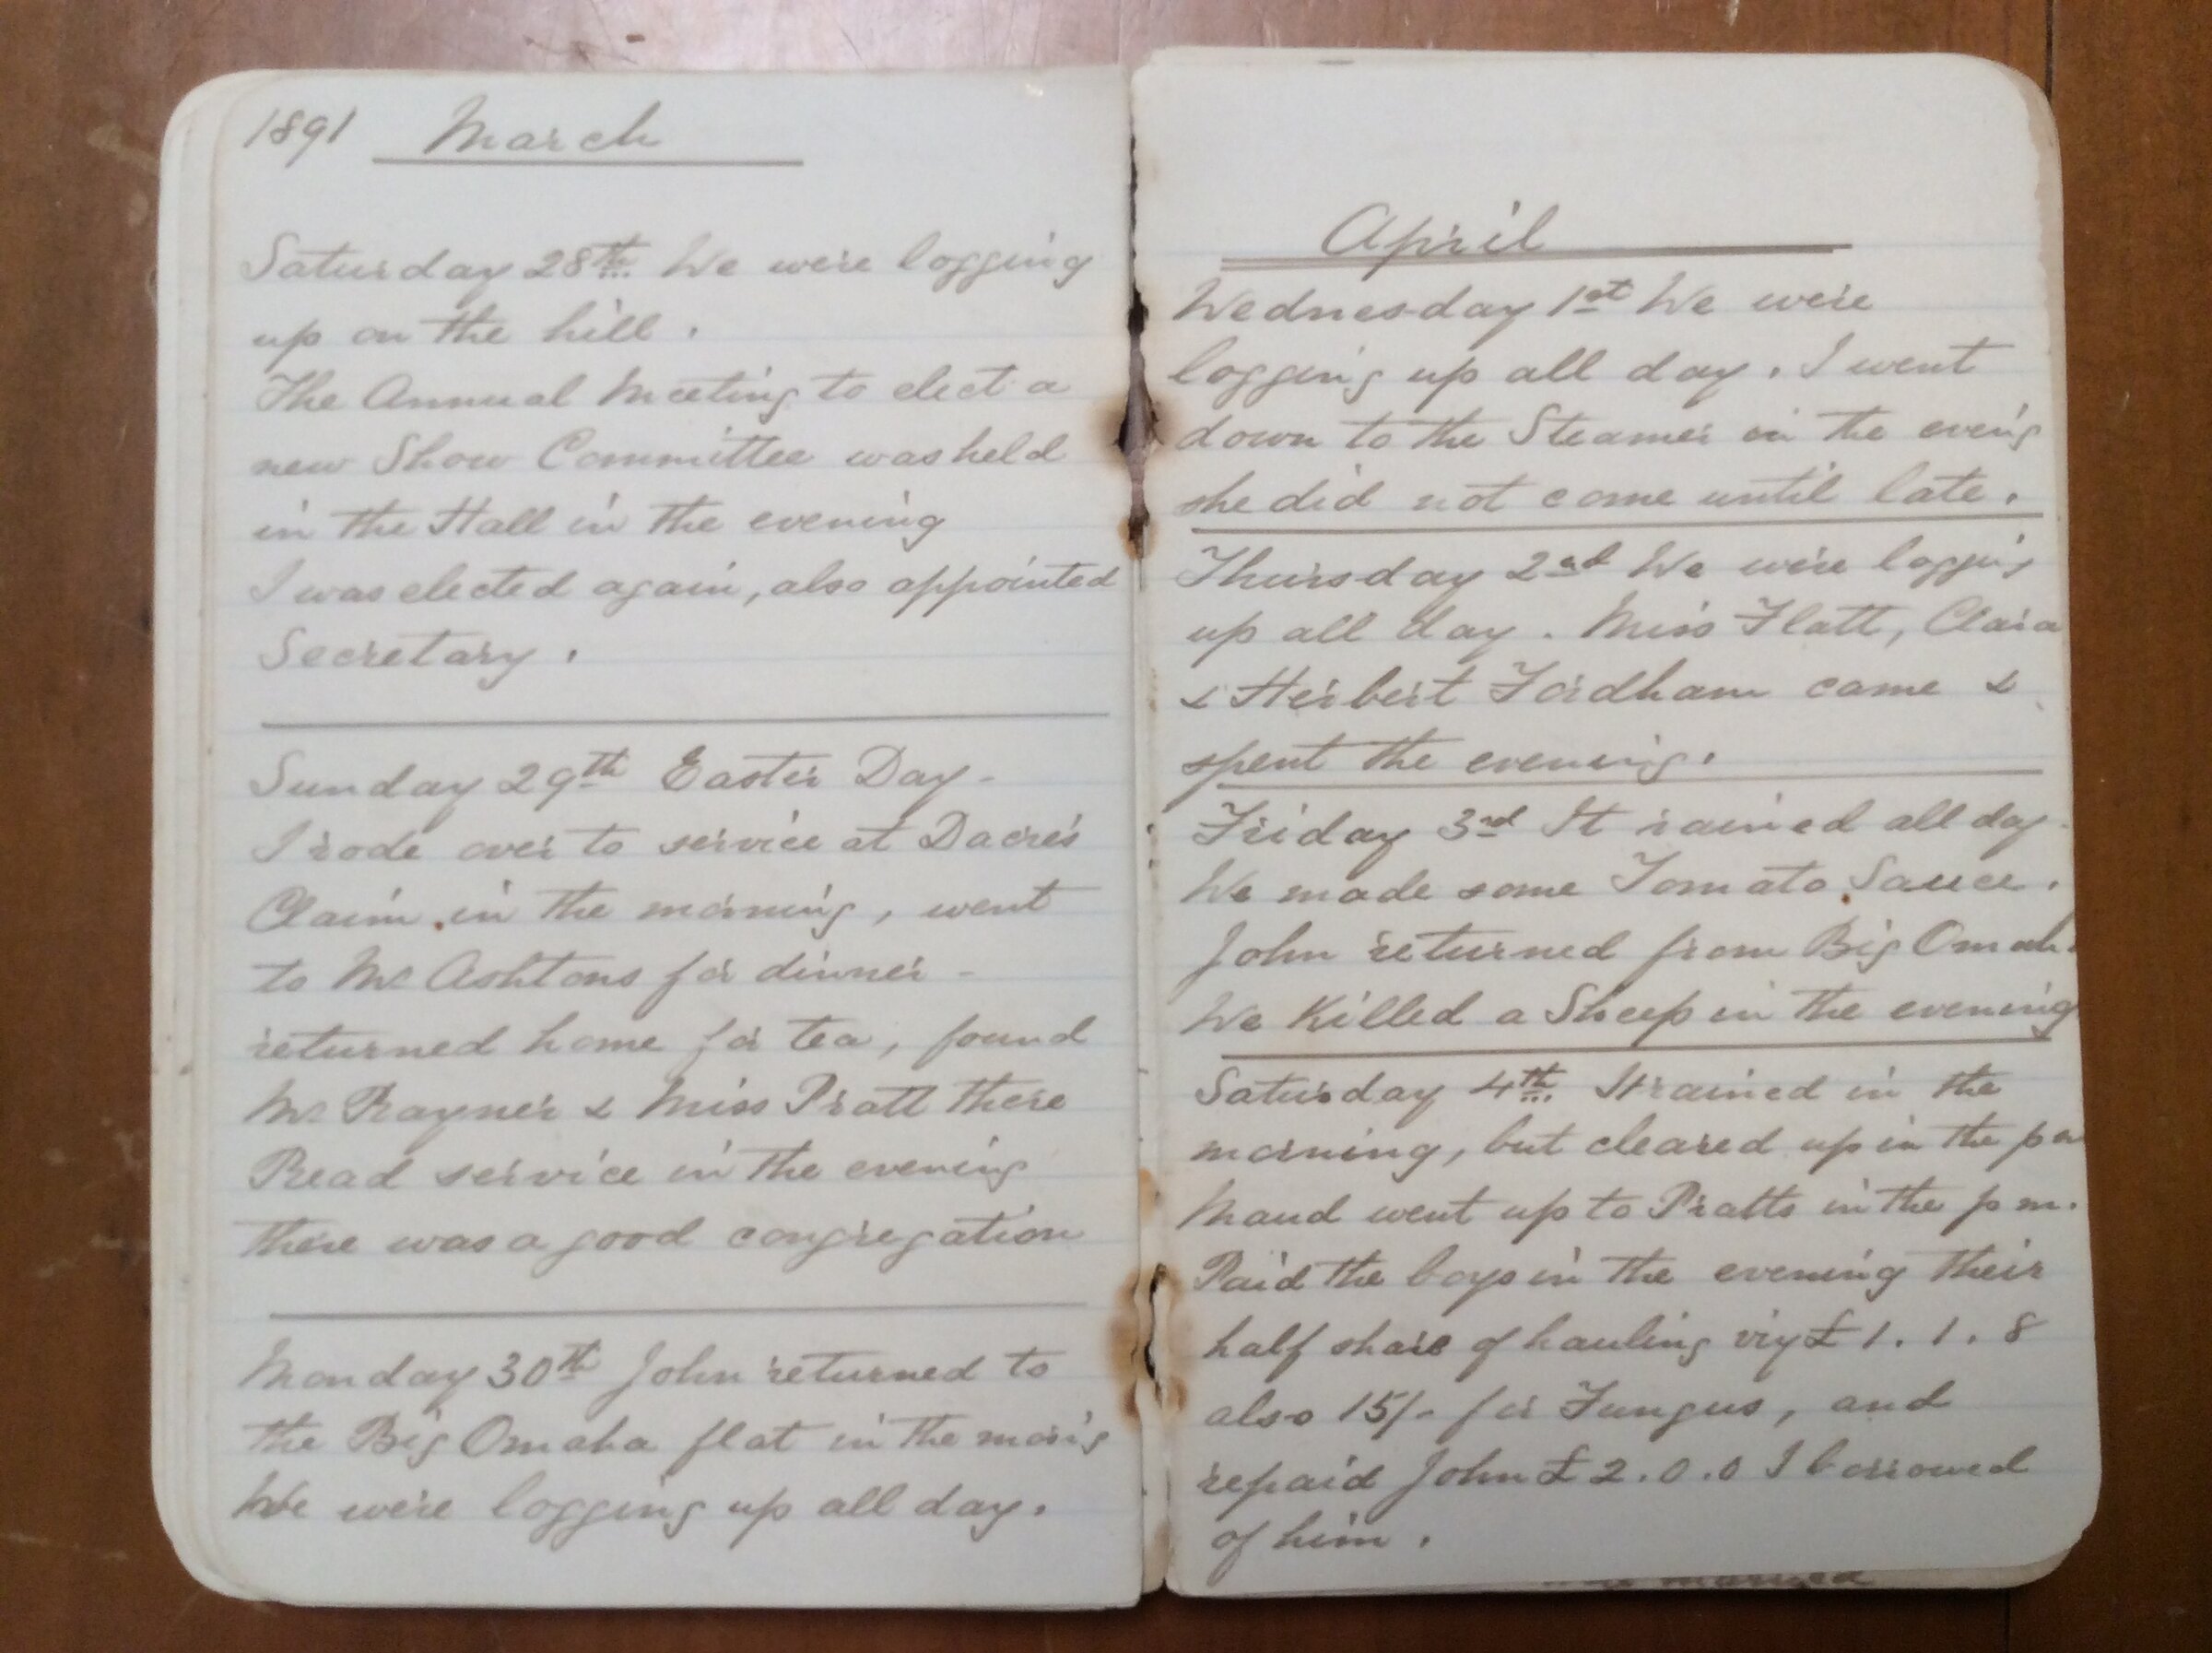 1891 March
Saturday 28th. We were logging
up on the hill.
The Annual Meeting to elect a
new Show Committee was held
in the Hall in the evening
I was elected again, also appointed
Secretary.
Sunday 29th Easter Day -
I rode over to service at Dacres
Claim in the morning, went
to Mr Ashtons for dinner -
returned home for tea, found
Mr Rayner & Miss Pratt there
Read service in the evening
there was a good congregation
Monday 30th John returned to
the Big Omaha flat in the morng
We were logging up all day.
April
Wednesday 1st We were
logging up all day. I went
down to the Steamer in the eveng
she did not come until late.
Thursday 2nd We were logging
up all day. Miss Flatt, Clara
& Herbert Fordham came &
spent the evening.
Friday 3rd It rained all day.
We made some Tomato Sauce.
John returned from Big Omaha
We Killed a Sheep in the evening
Saturday 4th. It rained in the
morning, but cleared up in the pm
Maud went up to Pratts in the p m.
Paid the boys in the evening their
half share of hauling viz £1.1.8
also 15/- for Fungus, and
repaid John £2.0.0 I borrowed
of him.